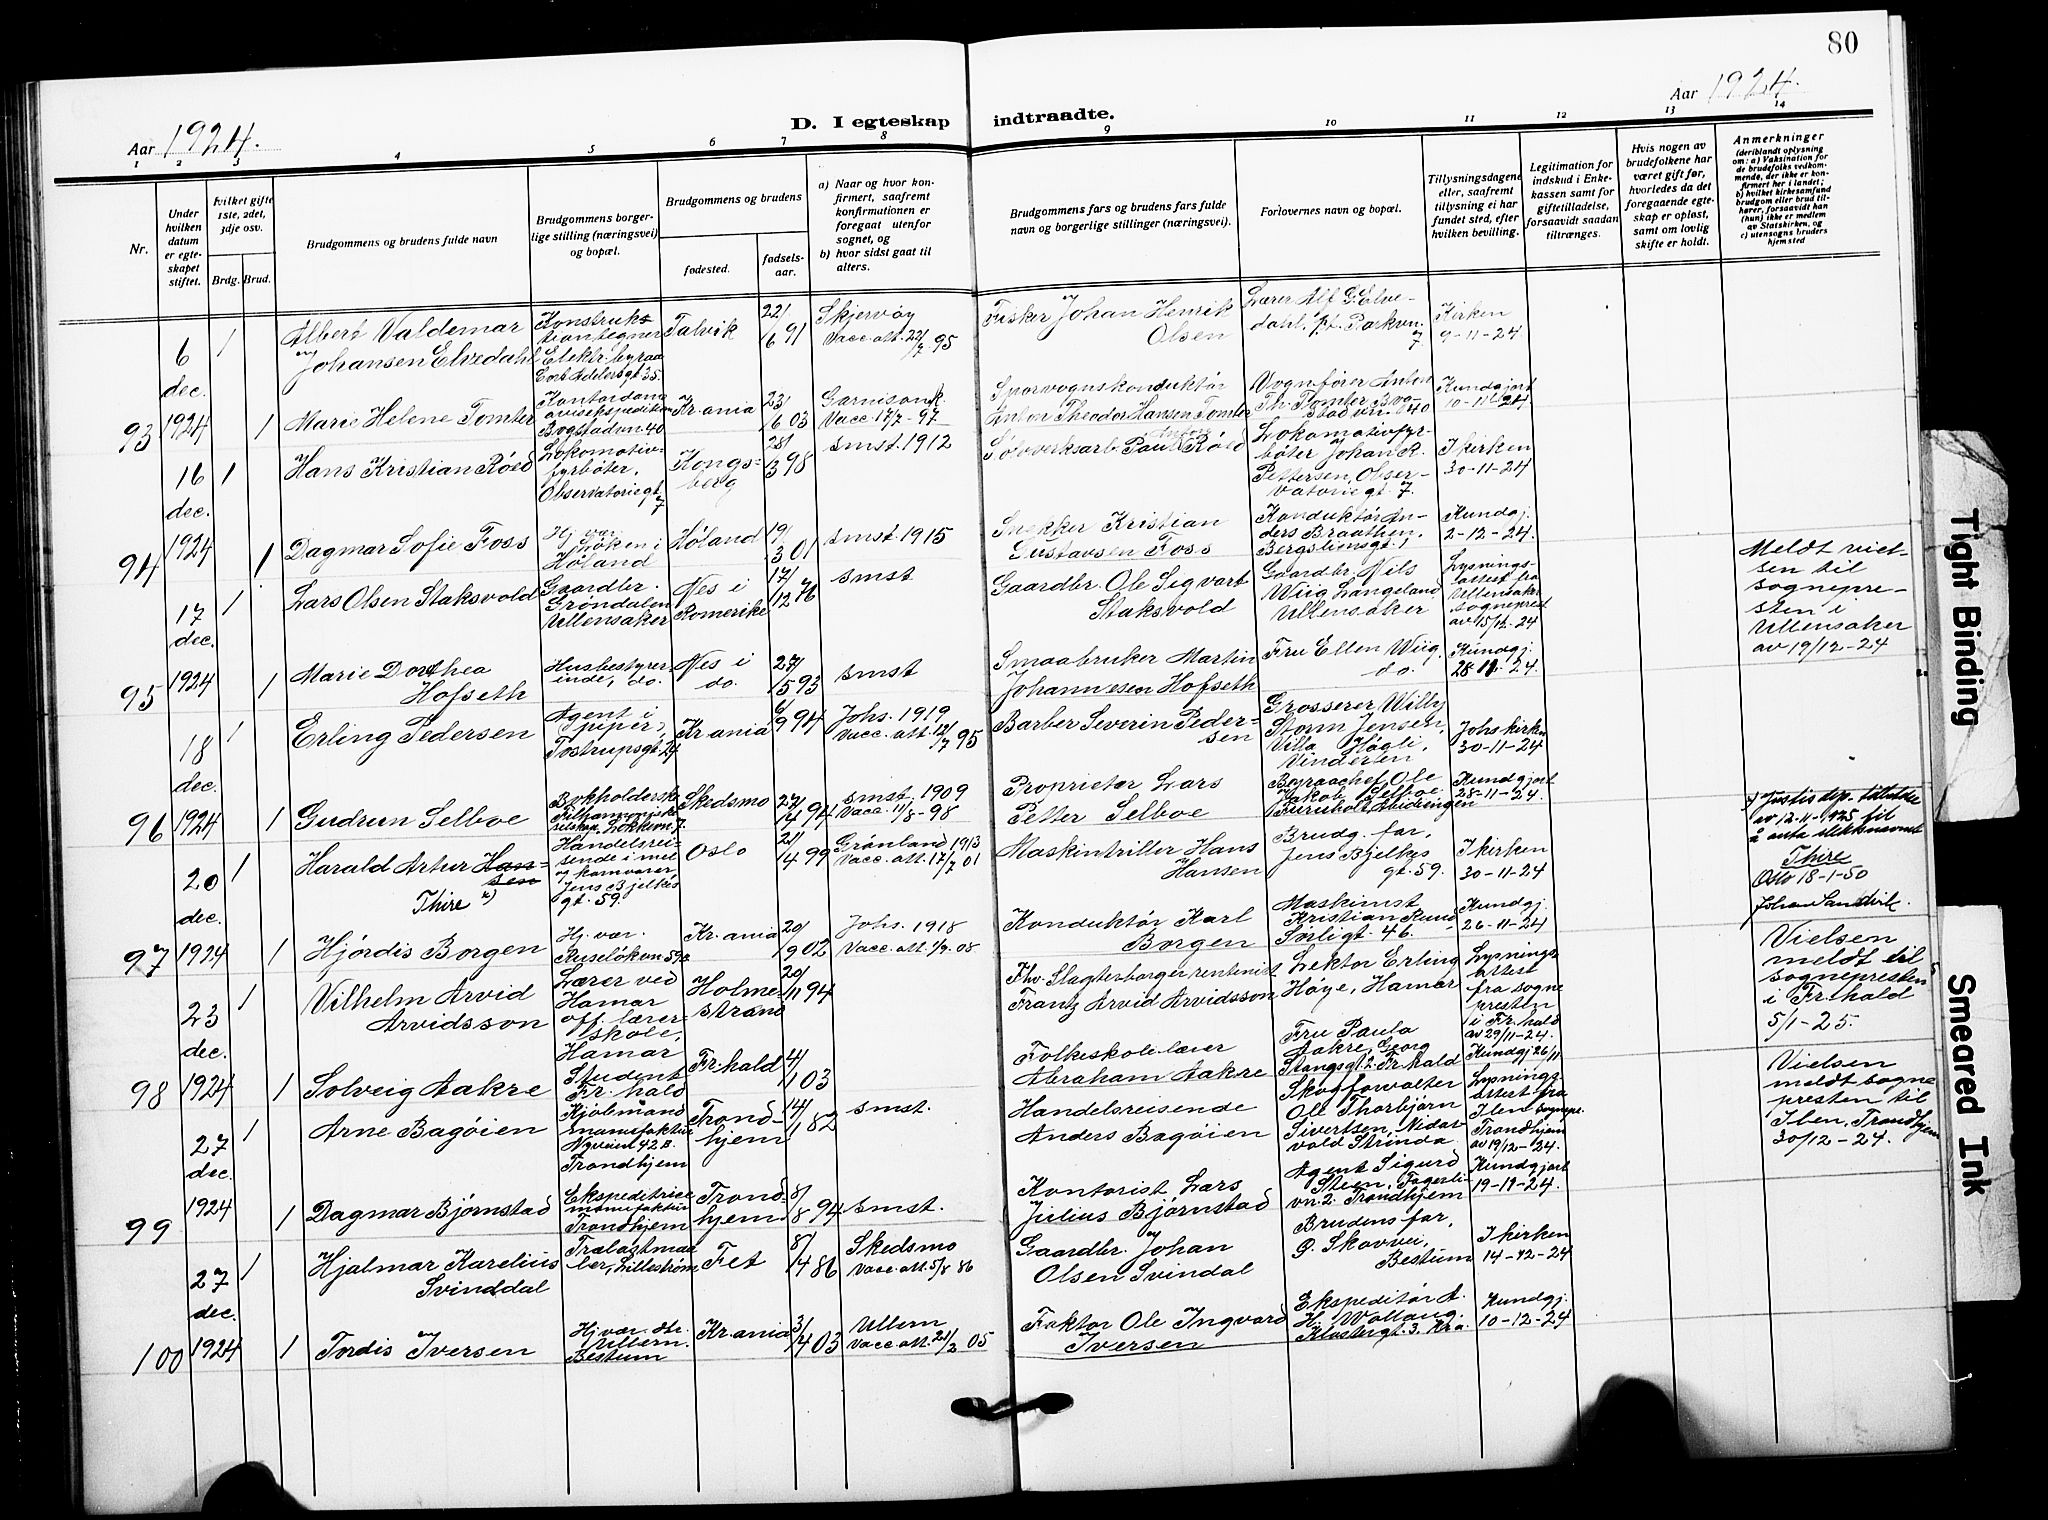 80
Aar 1924.
Aar 1924.
D. I egteskap indtraadte.
1 2 3 4 5 6 7 8 9 10 11 12 13 14
Nr.
Under hvilken datum er egteskapet stiftet.
hvilket gifte 1ste, 2det, 3dje osv.
Brdg. Brud.
Brudgommens og brudens fulde navn
Brudgommens borgerlige stilling (næringsvei) og bopæl.
Brudgommens og brudens
fødested.
fødselsaar.
a) Naar og hvor konfirmert, saafremt konfirmationen er foregaat utenfor sognet, og
b) hvor sidst gaat til alters.
Brudgommens fars og brudens fars fulde navn og borgerlige stillinger (næringsvei).
Forlovernes navn og bopæl.
Tillysningsdagene eller, saafremt tillysning ei har fundet sted, efter hvilken bevilling.
Legitimation for indskud i Enkekassen samt for giftetilladelse, forsaavidt saadan tiltrænges.
Hvis nogen av brudefolkene har været gift før, hvorledes da det foregaaende egteskap er opløst, samt om lovlig skifte er holdt.
Anmerkninger
(deriblandt oplysning om: a) Vaksination for de brudefolks vedkommende, der ikke er konfirmert her i landet; b) hvilket kirkesamfund brudgom eller brud tilhører, forsaavidt han (hun) ikke er medlem av Statskirken, og c) utensogns bruders hjemsted
93
6 dec. 1924
1 Albert Valdemar Johansen Elvedahl
Konstruktiontegner Elektr. byraa Cort Adelersgt 35.
Talvik
22/6 91
Skjervøy Vacc. att. 22/7 95
Fisker Johan Henrik Olsen
Lærer Alf G. Elvedahl, pt. Parkvn. 7
Kirken 9-11-24
1 Marie Helene Tomter
Bogstadvn 40
Kr.ania
23/6 03
Garnisonk. Vacc 17/7-97
Sporvognskonduktør Anton Theodor Hansen Tomter
Vognfører Anton Th. Tomter Bogstadvn. 40
Kundgjort
94
16 dec. 1924
1 Hans Kristian Røed
Lokomotivfyrbøter, Observatoriegt. 7
Kongsberg
28/3 98
smst. 1912
Sølvverksarb. Paul Røed
Lokomotivfyrbøter Johan R. Pettersen, Observatoriegt. 7.
I kirken 30-11-24
1 Dagmar Sofie Foss
Hj. vær. Løken i Høland
Høland
19/3 01
smst. 1915
Snekker Kristian Gustavsen Foss
Konduktør Anders Braathen, Bergsliensgt. 1
Kundgj. 2-12-24
95
17 dec. 1924
1 Lars Olsen Staksvold
Gaardbr. Grøndalen Ullensaker
Nes i Romerike
17/12 76
smst
Gaardbr. Ole Sigvart Staksvold
Gaardbr. Nils Wiig Langeland Ullensaker
Lysningsattest fra Ullensaker sogneprest av 15/12-24
Meldt vielsen til sognepresten i Ullensaker av 19/12-24
1 Marie Dorthea Hofseth
Husbestyrerinde, do.
Nes i do.
27/5 93
smst
Smaabruker Martin Johannesen Hofseth
Fru Ellen Wiig do.
Kundgj. 28-11-24.
96
18 dec. 1924
1 Erling Pedersen
Agent i papir, Tostrupsgt. 24
Kr.ania
6/9 94
Johs. 1919 Vacc. att. 12/7 95
Barber Severin Pedersen
Grosserer Willy Storm Jensen, Villa Høgli, Vinderen
Johs. kirken 30-11-24
1 Gudrun Selboe
Bokholderske
Skedsmo
27/4 94
smst. 1909 Vacc. 11/8-98
Proprietær Lars Petter Selboe
Byraachef Ole Jakob Selboe
Kundgjort 28-11-24.
97
20 dec. 1924
1 Harald Artur Hansen Thire x)
Handelsreisende i mel og kornvarer Jens Bjelkes gt. 59.
Oslo
21/4 99
Grønland 1913 Vacc. att. 17/7 01
Maskintriller Hans Hansen
Brudg. far, Jens Bjelkes gt. 59.
I kirken 30-11-24
x) Justisdep. tillatelse av 12-11-1925 til å anta slektsnavnet Thire
Oslo 18-1-50
Johan Sandvik.
1 Hjørdis Borgen
Hj. vær. Ruseløkvn 59
Kr.ania
20/9 02
Johs. 1918 Vacc. att. 1/9-08
Konduktør Karl Borgen
Maskinist Kristian Rund Sørligt. 46.
Kundgj. 26-11-24
98
23 dec. 1924
1 Vilhelm Arvid Arvidsson
Lærer ved Hamar off. lærerskole, Hamar
Holmestrand
20/11 94
Fhv. Slagterborger rentenist Frantz Arvid Arvidsson
Lektor Erling Høye, Hamar
Lysningsattest fra sognepresten i Fr. hald av 29/11-24.
Vielsen meldt til sognepresten i Fr. hald 5/1-25.
1 Solveig Aakre
Student Fr. hald
Fr. hald
4/1 03
Folkeskolelærer Abraham Aakre
Fru Paula Aakre, Georg Stangsgt. 2. Fr. hald
Kundgj 26/11
99
27 dec. 1924
1 Arne Bagøien
Kjøbmand manufaktur Trondhjem
Trondhjem
14/1 82
smst.
Handelsreisende Anders Bagøien
Skogforvalter Ole Thorbjørn Sivertsen, Nidarvold Strinda
Lysningsattest fra Ilen sognepr. Trondhjem av 19/12-24.
Vielsen meldt sognepresten til Ilen, Trondhjem 30/12-24.
1 Dagmar Bjørnstad
Ekspeditrice manufaktur Trondhjem
Trondhjem
8/8 94
smst.
Kontorist Lars Julius Bjørnstad
Agent Sigurd Steen, Fagerlivn. 2. Trondhjem
Kundgjort 19-11-24.
100
27 dec. 1924
1 Hjalmar Karelius Svinddal
Lillestrøm
Fet
8/4 86
Skedsmo Vacc. att. 5/8 86
Gaardbr. Johan Olsen Svindal
Brudens far, O. Skovvei, Bestum
I kirken 14-12-24
1 Tordis Iversen
Hj. vær. Ullern. Bestum
Kr.ania
3/4 03
Ullern Vacc. att. 21/2 05
Faktor Ole Ingvard Iversen
Ekspeditør A. H. Wollaug. Klostergt. 3. Kra.
Kundgj. 10-12-24
Tight Binding
Smeared Ink